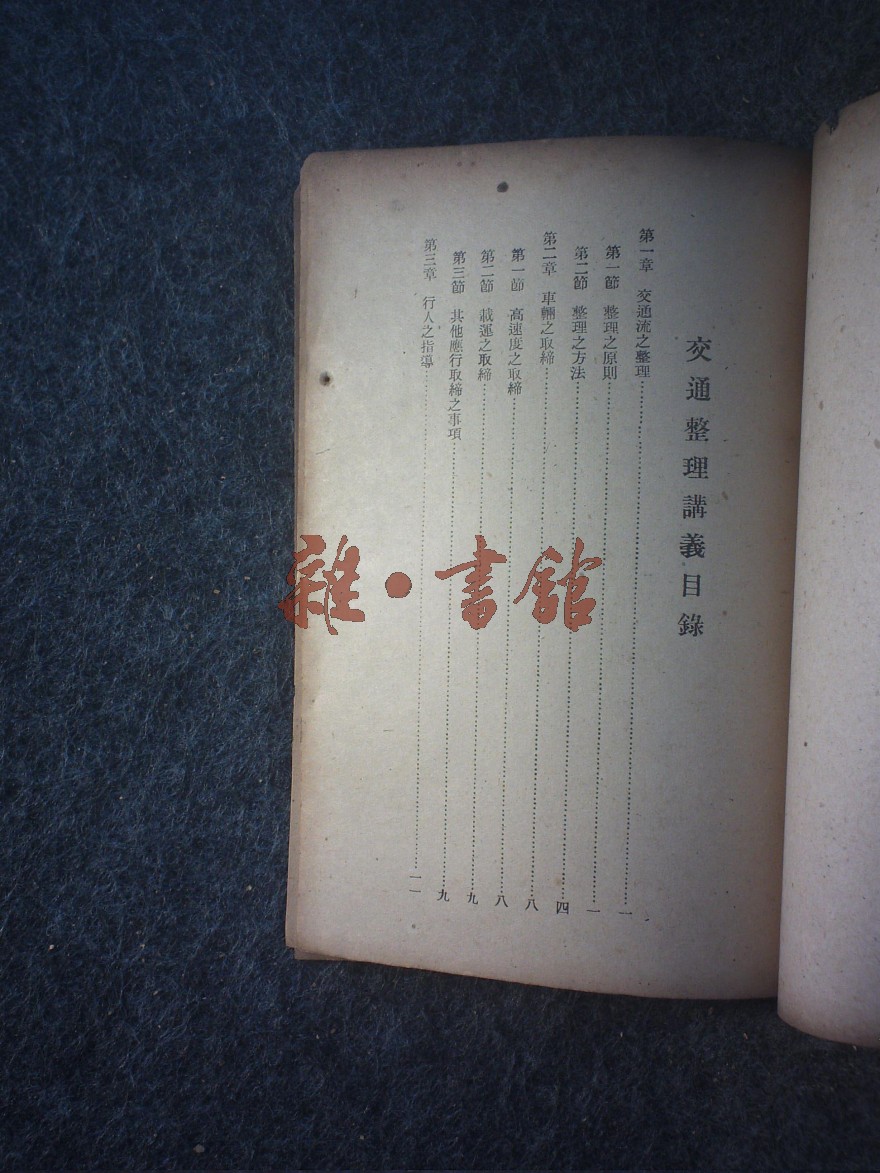 交通整理講義目錄
第一章 交通流之整理……一
第一節 整理之原則……一
第二節 整理之方法……四
第二章 車輛之取締……八
第一節 高速度之取締……八
第二節 載運之取締……九
第三節 其他應行取締之事項……九
第三章 行人之指導……一一
雜·書館